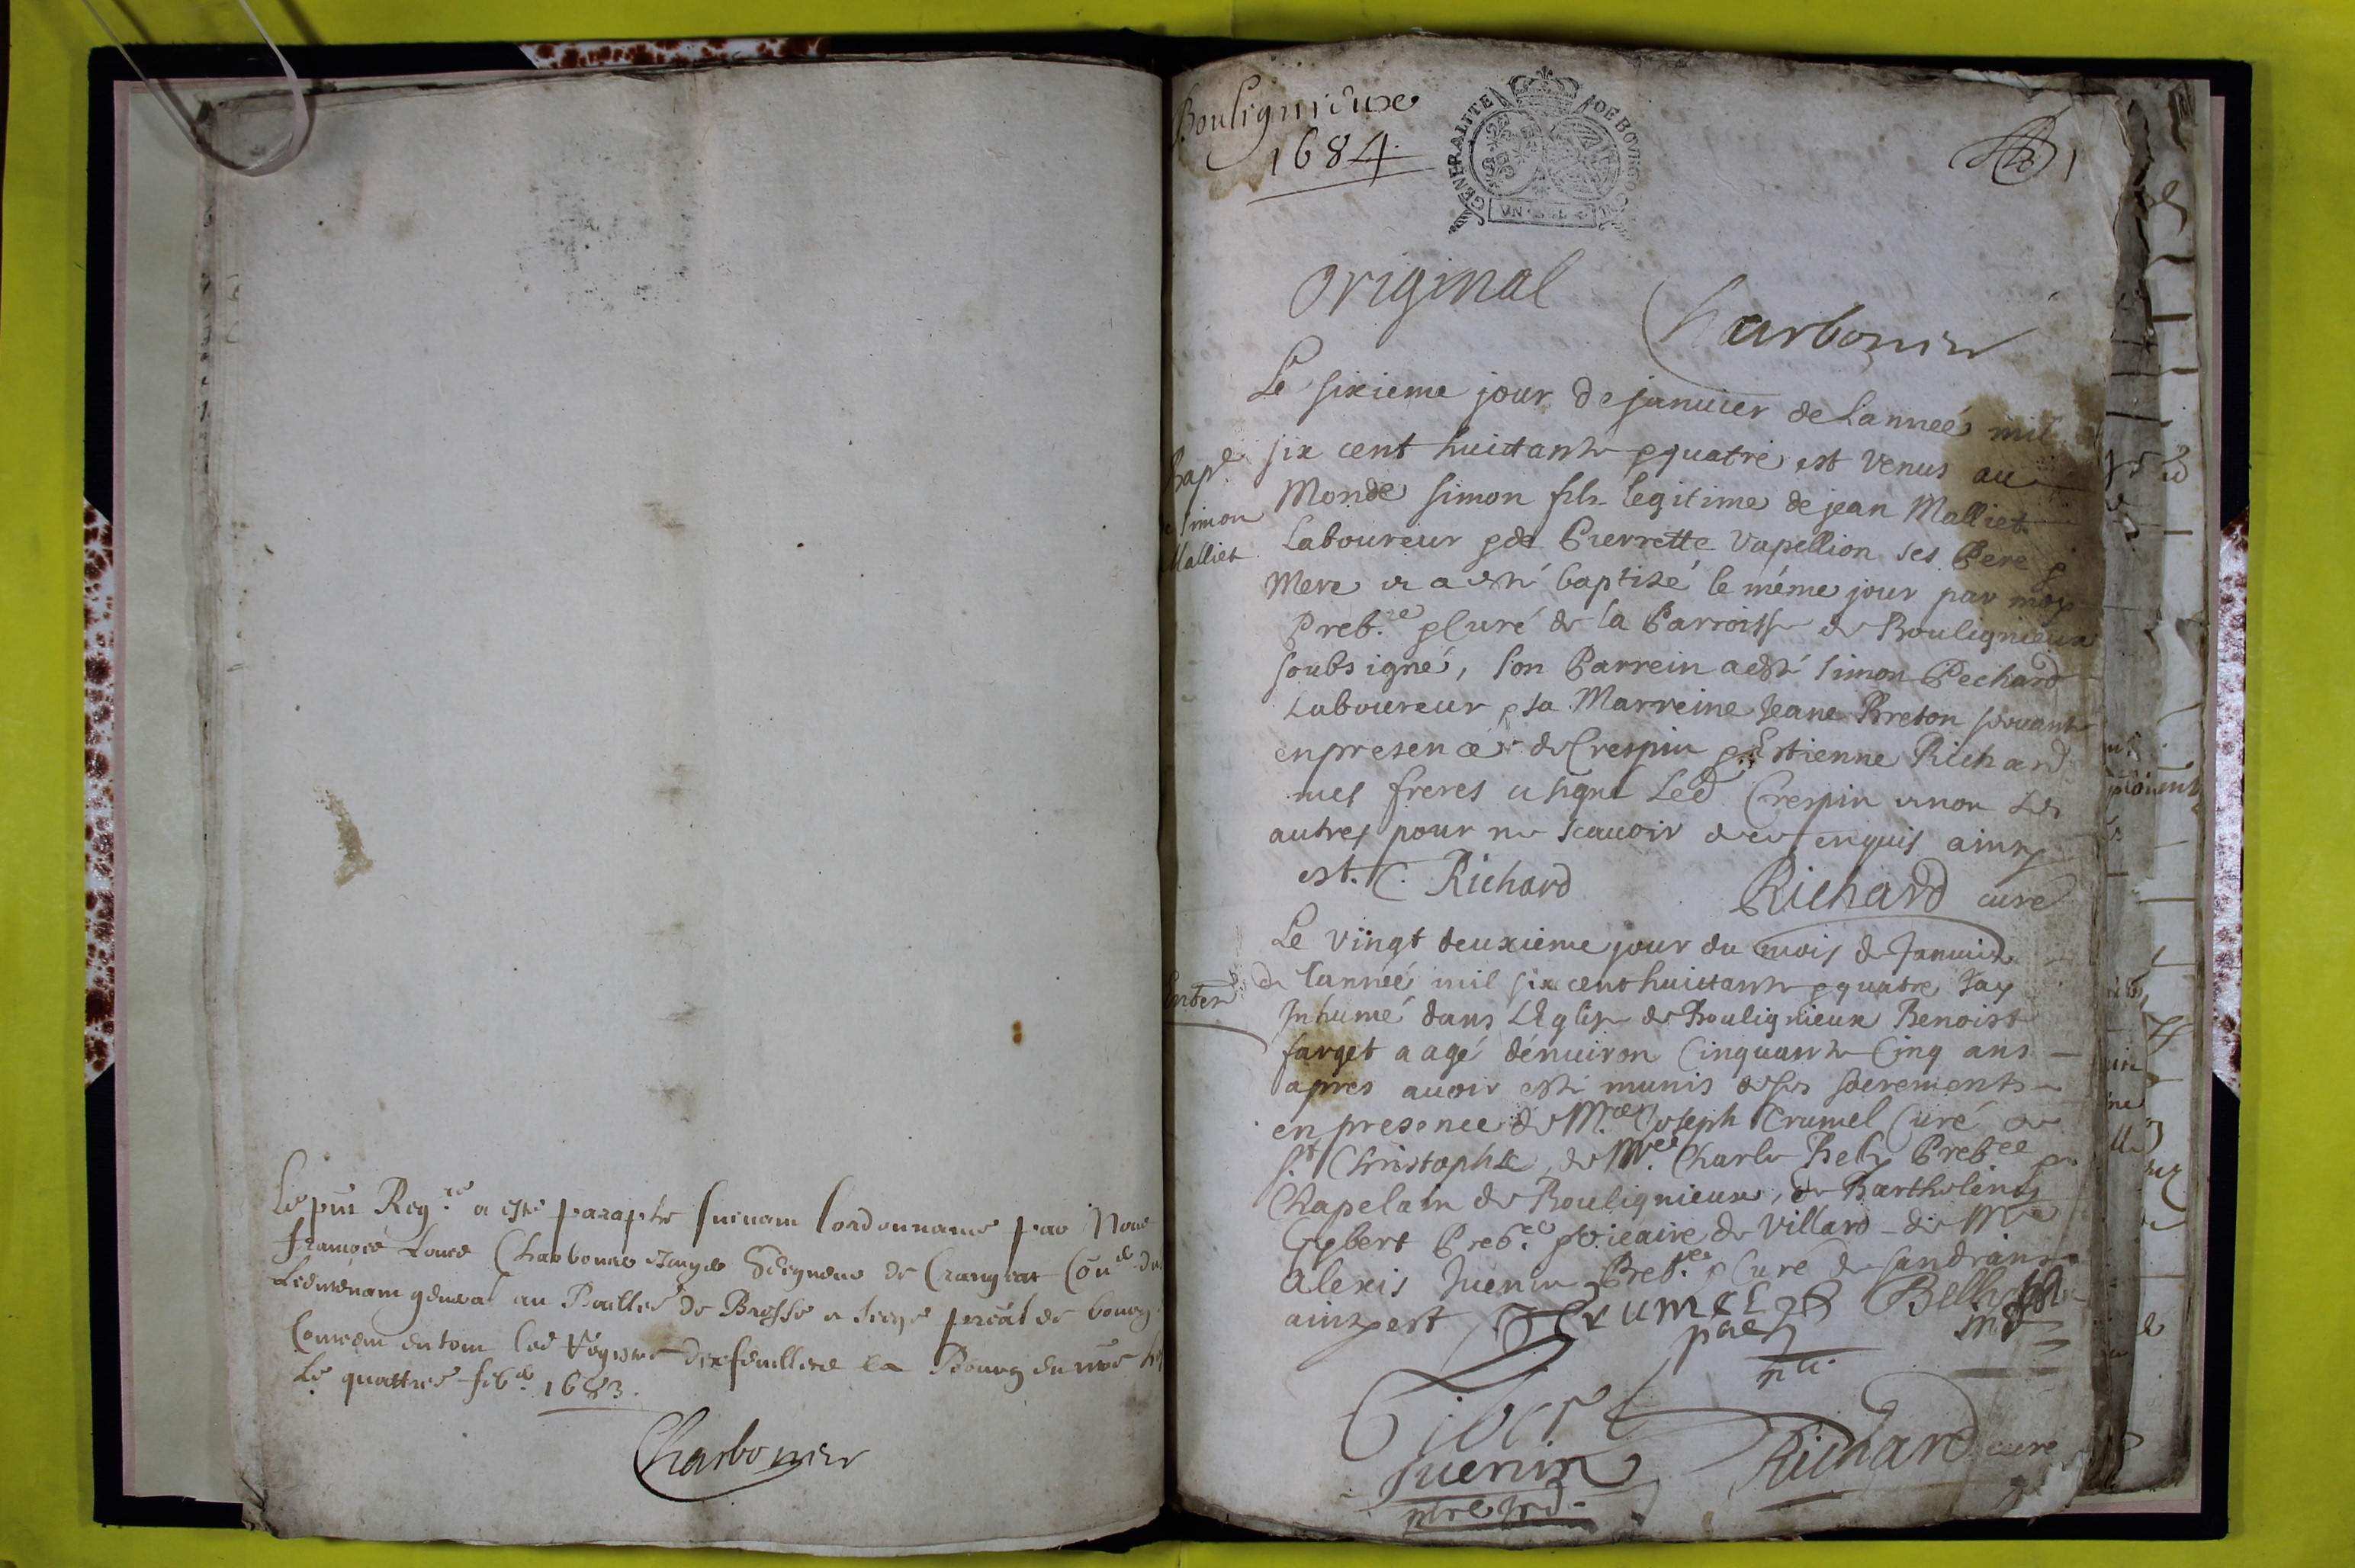 Le pnt Reg.re a esté paraphé suivant lordonnance par Nous
francois Louis Charbonnier Seigneur de Crangeat Con.er du
Lieutenant general au Bailliage de Bresse et siege pnal de bourg
Contenant en tout led Registre dix feuillets a Bourg en nre
Le quattrie feb. 1683.
Charbonier
Boulignieux
1684
GENERALITE DE BOVRGOG
VN SOL
1
Original
Charbonier
Bap.e
de Simon
Malliet
Le sixieme jour de janvier de Lanneé mil
six cent huictante & quatre est venus au
Monde simon fils legitime de jean Malliet
Laboureur & de Pierrette Vapellion ses Pere &
Mere et a esté baptizé le méme jour par moy
Preb.re & Curé de la Parroisse de Boulignieux
soubsigné, son Parrein a esté simon Pechard
Laboureur & sa Marreine Jeane Breton servante
en presence de Crespin & Estienne Richard
mes freres a signé Led Crespin & non Les
autres pour ne scavoir de ce enquis ainsy
est. C. Richard
Richard curé
Enter
Le vingt deuxieme jour du mois de Janvier
de lanneé mil six cent huictante & quatre Jay
Inhumé dans LEglise de Boulignieux Benoist
farget aagé dénviron Cinquante Cinq ans
apres avoir esté munis de ses sacrements
en presence de M.re Joseph Trumel Curé de
S.t Christophle, de M.re Charle Bely Preb.re &
Chapelain de Boulignieux, de Barthelemy
Gybert Preb.re & vicaire de Villard de M.re
Alexis Juenin Preb.re & Curé de sandrans
ainsy est Trumel
Gibert
Juenin
Richard curé